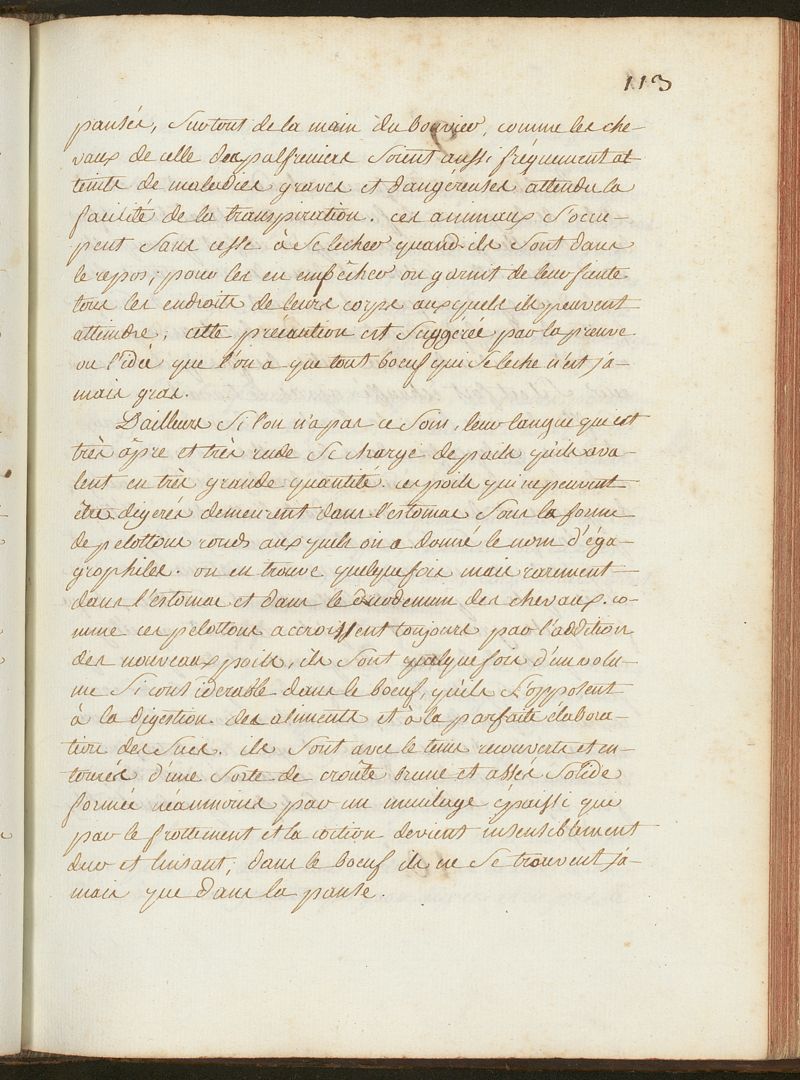 113
pansés, Surtout de la main du bouvier, comme les che-
vaux de celle des palfreniers Soient aussi fréquement at
teints de maladies graves et dangéreuses attendu la
facilité de la transpiration. ces animaux S'occu-
pent Sans cesse à Se lecher quand ils Sont dans
le repos; pour les en empêcher on garnit de leur fiente
tous les endroits de leurs corps auxquels ils peuvent
atteindre, cette précaution est Suggérée par la preuve
ou l'idée que l'on a que tout boeuf qui Se leche n'est ja-
mais gras.
D'ailleurs Si l'on n'a pas ce Soin, leur langue qui est
très âpre et très rude Se charge de poils qu'ils ava-
lent en très grande quantité. ces poils qui ne peuvent
être digerés demeurent dans l'estomac Sous la forme
de pelottons ronds auxquels on a donné le nom d'éga-
grophiles. on en trouve quelque fois mais rarement
dans l'estomac et dans le duodenum des chevaux. co-
mme ces pelottons accroissent toujours par l'addition
des nouveaux poils, ils Sont quelque fois d'un volu-
me Si considerable dans le boeuf, qu'ils S'opposent
à la digestion des aliments et à la parfaite élabora-
tion des Sucs. ils Sont avec le tems recouverts et en-
tourés d'une Sorte de croûte brune et assés Solide
formée néanmoins par un mucilage épaissi que
par le frottement et la coction devient insensiblement
dur et luisant, dans le boeuf ils ne Se trouvent ja-
mais que dans la panse.